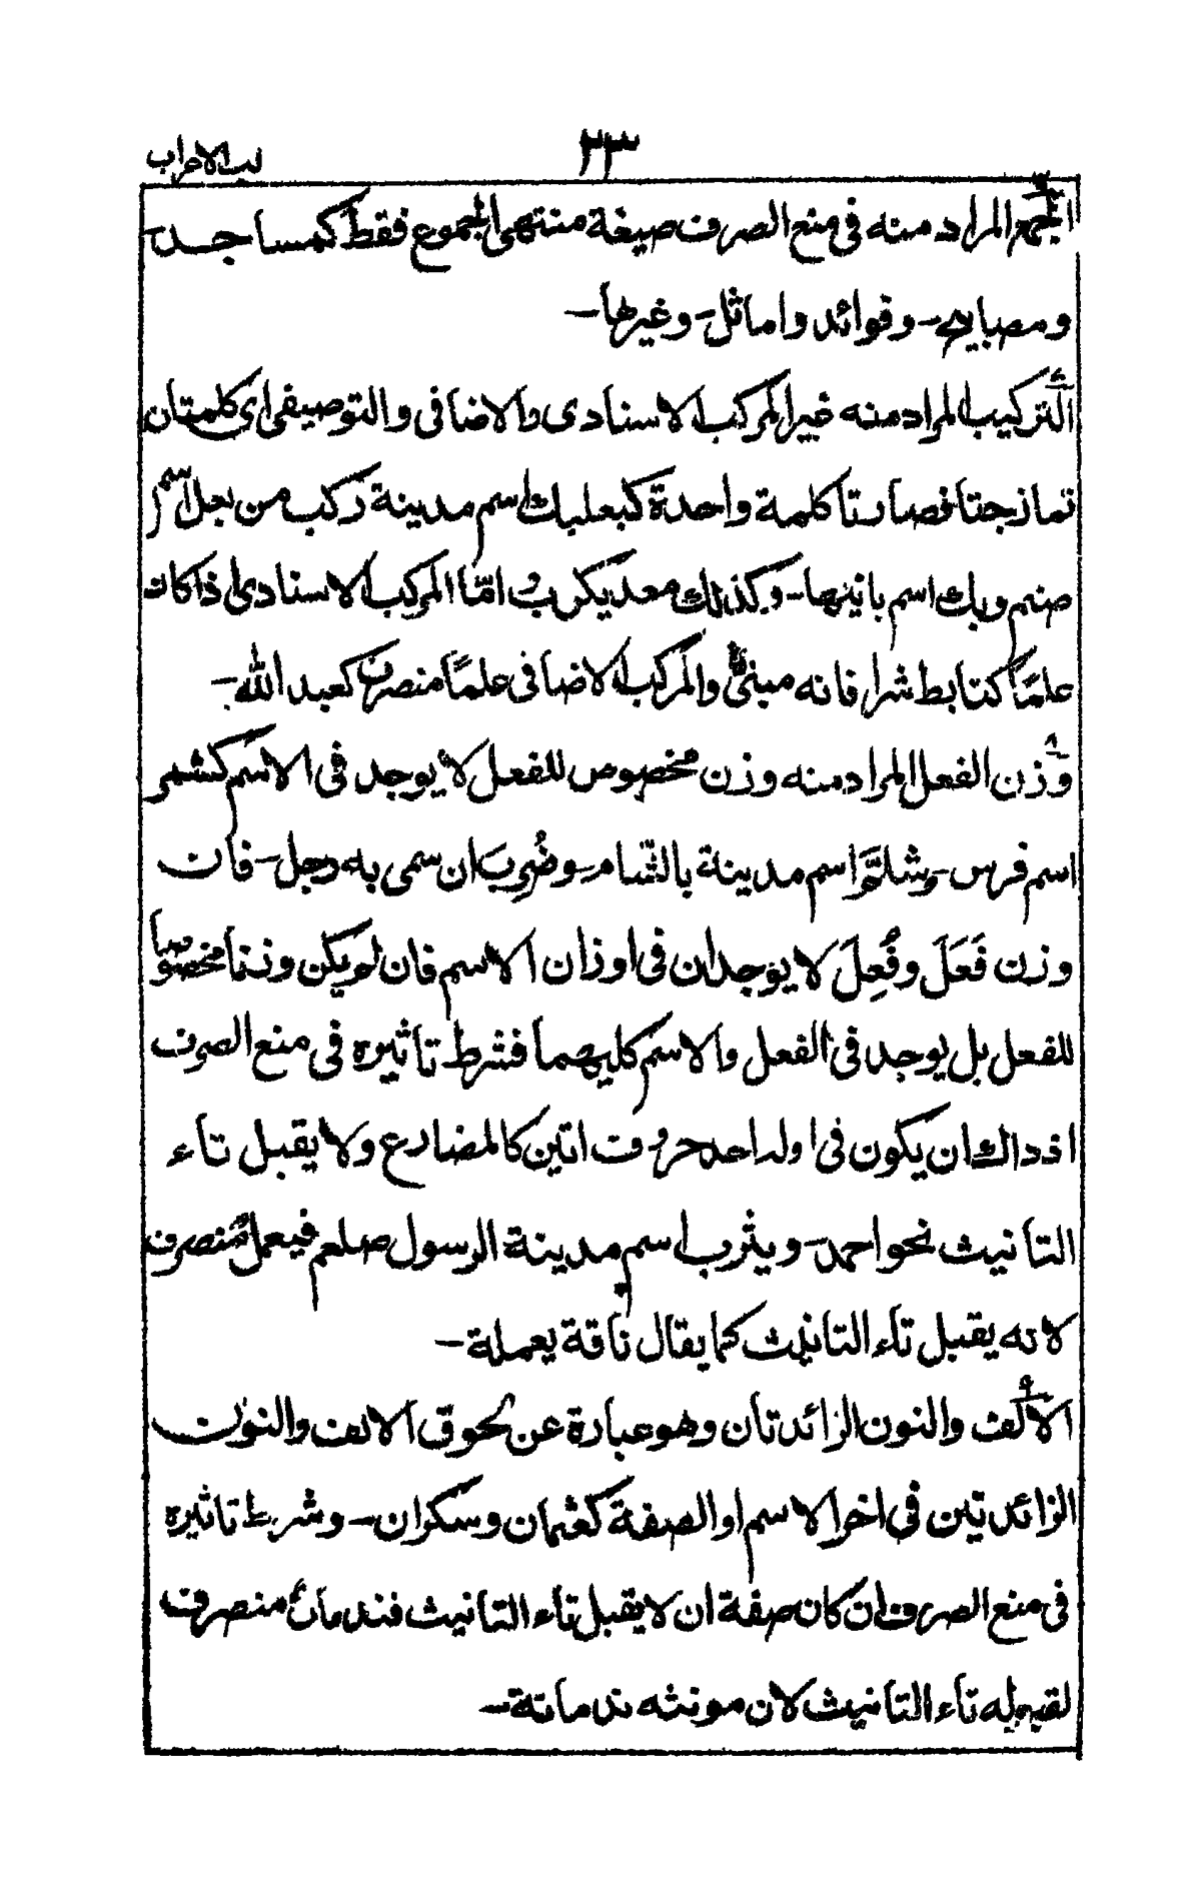 ٣٣
لب الاعراب
الجمع المراد منه فى منع الصرف صيغة منتهى الجموع فقط كمساجد
ومصابيح - وفوائد واماثل - وغيرها -
التركيب المراد منه غير المركب الاسنادى والاضافى والتوصيفى اى كلمتان
تمازجتا فصارتا كلمة واحدة كبعلبك اسم مدينة ركب من بعل اسم
صنم وبك اسم بانيها - وكذلك معديكرب امّا المركب الاسنادى اذا كان
علمًا كتابط شرا فانه مبنىٌّ والمركب الاضافى علمًا منصرف كعبد الله -
٨
وزن الفعل المراد منه وزن مخصوص للفعل لا يوجد فى الاسم كشمر
اسم فرس - وشلّم اسم مدينة بالشّام - وضُرِب ان سمى به رجل - فان
وزن فَعَلَ وفُعِلَ لا يوجدان فى اوزان الاسم فان لم يكن وزنا مخصوصا
للفعل بل يوجد فى الفعل والاسم كليهما فشرط تاثيره فى منع الصرف
اذ ذاك ان يكون فى اوله احد حروف اتين كالمضارع ولا يقبل تاء
التانيث نحو احمد - ويثرب اسم مدينة الرسول صلعم فيعمل منصرف
لانه يقبل تاء التانيث كما يقال ناقة يعملة -
٩
الالف والنون الزائدتان وهو عبارة عن لحوق الالف والنون
الزائدتين فى اخر الاسم او الصفة كعثمان وسكران - وشرط تاثيره
فى منع الصرف ان كان صفة ان لا يقبل تاء التانيث فندمان منصرف
لقبوله تاء التانيث لان مونثه ندمانة -